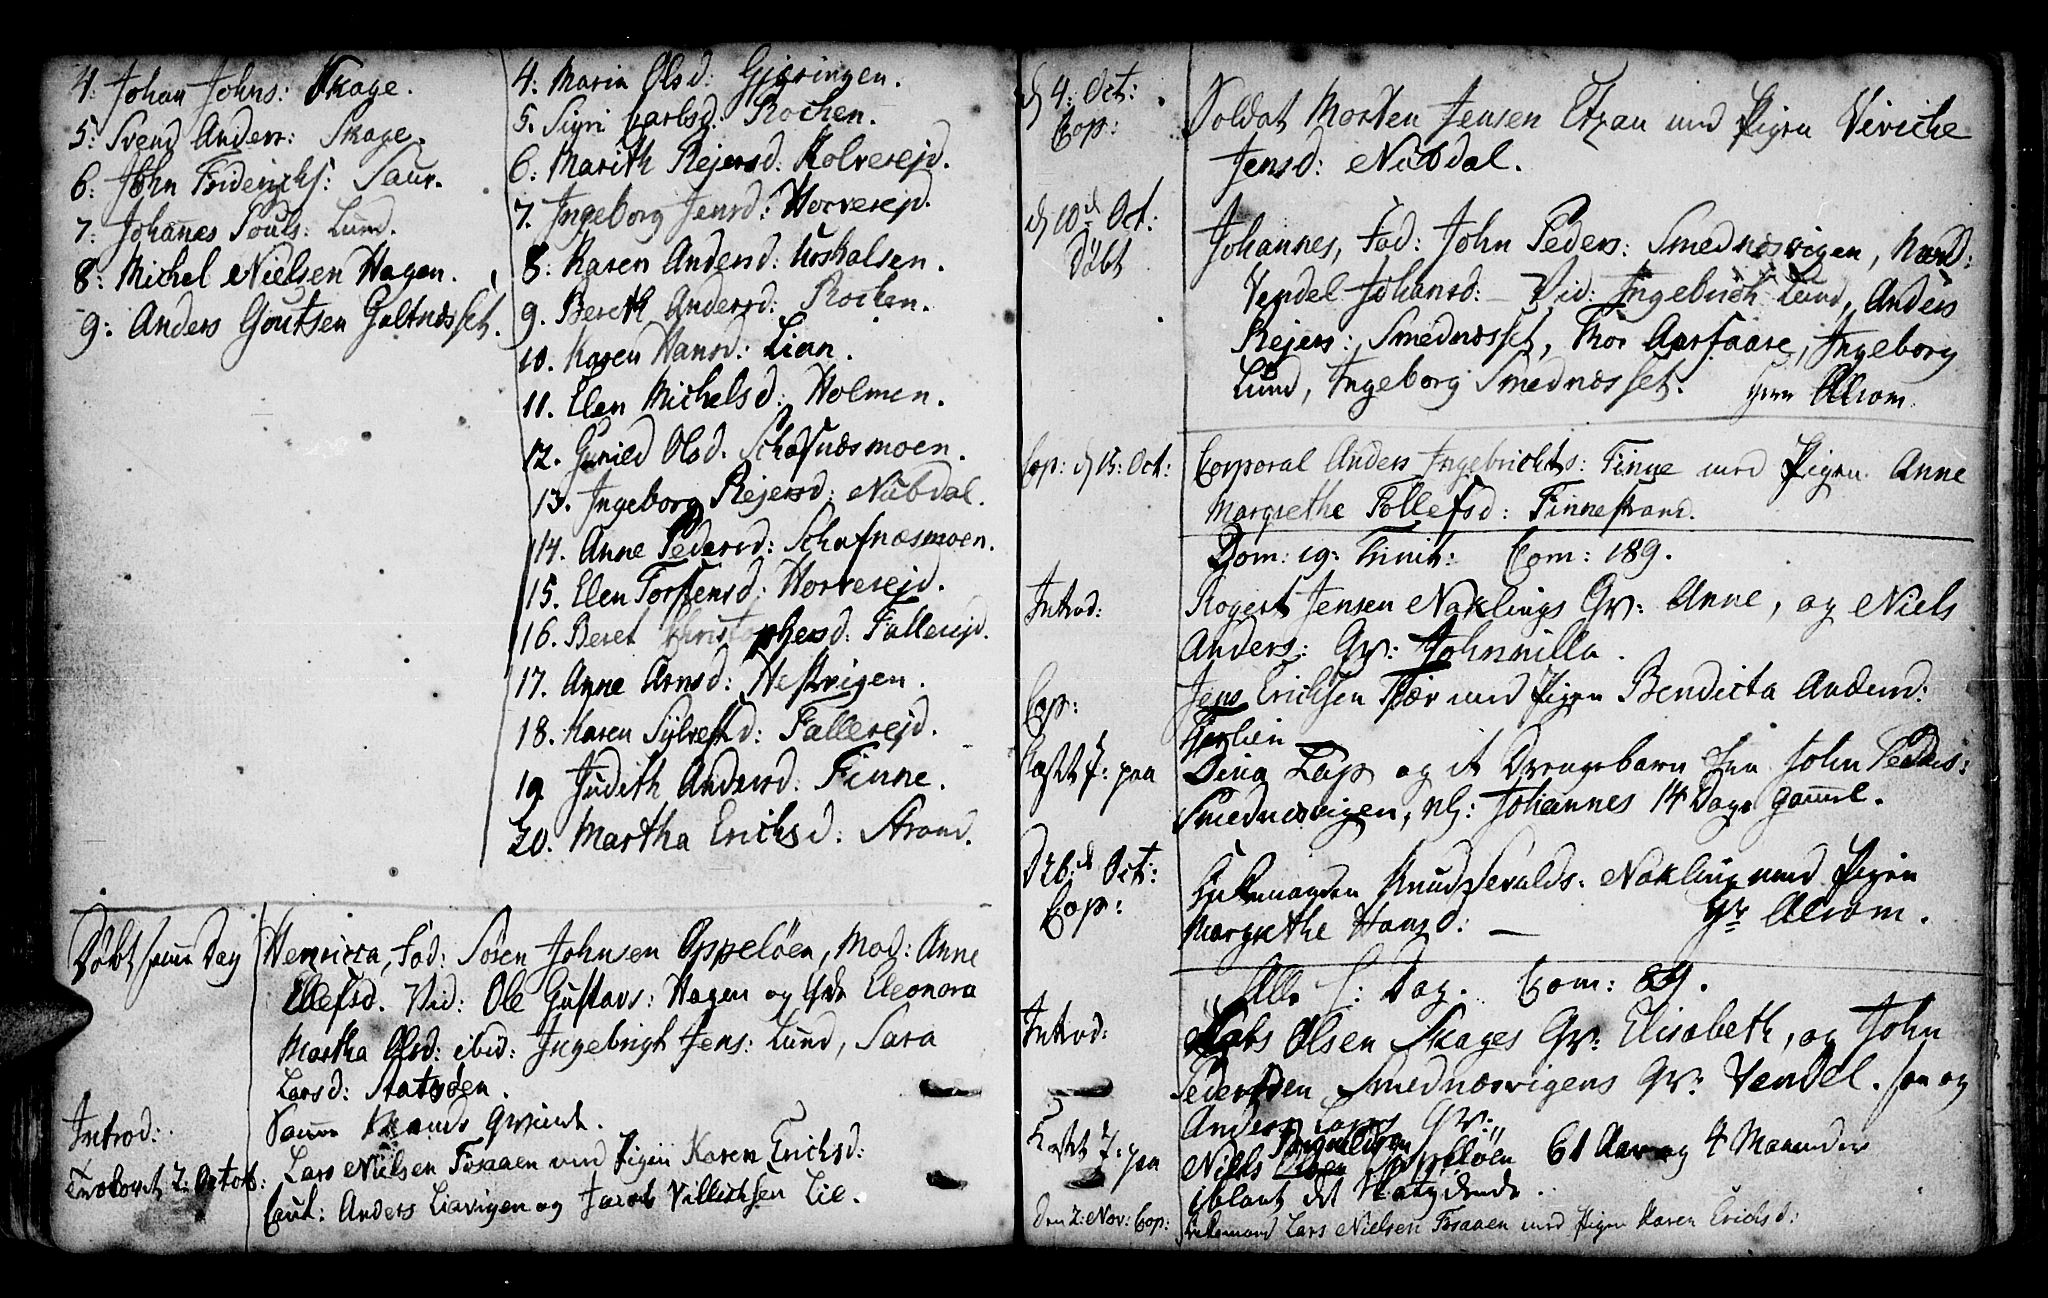 4: Johan Johns: Skage.
5: Svend Anders: Skage.
6: John Friderichs: Saur.
7: Johanes Pouls: Lund.
8: Michel Nielsen Hagen.
9: Anders Goutsen Galtnæsset.
4: Maria Olsd: Gjeringen.
5. Sigri Carlsd: Rochen.
6: Marith Rejersd: Kolverejd.
7. Ingeborg Jensd: Horverejd.
8: Karen Andersd: Urskalsen.
9. Bereth Andersd: Rochen.
10. Karen Hansd: Lian.
11. Elen Michelsd: Holmen.
12. Gunild Olsd. Schafnæsmoen.
13. Ingeborg Rejersd: Nubdal.
14. Anne Pedersd: Schafnæsmoen.
15. Elen Torstensd: Horverejd.
16. Beret Christophersd: Fallerejd.
17. Anne Arnsd: Hestvigen.
18. Karen Sylvestd: Fallerejd.
19 Judith Andersd: Finne.
20. Martha Erichsd: Strand.
Døbt samme Dag Henricca, Fad: Søren Johnsen Oppeløen, Mod: Anne
Ellefsd. Vid: Ole Gustavs: Hagen og Eleonora
Martha Olsd: ibid: Ingebrigt Jens: Lund, Sara
Larsd: Statsøen.
Introd: Samme Qvinde.
Trolovet 2: Octob: Lars Nielsen Fosaaen med Pigen Karen Erichsd:
Caut: Anders Liavigen og Jacob Villichsen Lie.
d 4: Oct: Soldat Morten Jensen med Pigen Viviche
Cop: Jensd: Nubdal.
d 10d Oct: Johannes, Fad: John Peders: Smednæsvigen, Mod:
Døbt Vendel Johansd: – Vid: Ingebrich Lund, Anders
Rejers: Smednæsset, Thor Aarfaare, Ingeborg
Lund, Ingeborg Smednæsset.
Cop: d 15: Oct: Corporal Anders Ingebrichts: Finne med Pigen Anne
Margrethe Tollefsd: Finnestrand.
Dom: 19: Trinit: Com: 189.
Introd: Rogert Jensen Naklings Qv: Anne, og Niels
Anders: Qv: Johnnilla.
Cop: Jens Erichsen med Pigen Bendicta Andersd:
Fierlien
Kastet J: paa Dina Lap og it Drengebarn fra John Peders:
Smednæsvigen, nlg: Johannes 14 Dage gammel.
D 26d Oct: Knud Sevalds: Nakling med Pigen
Cop: Margrethe Hansd: –
Alle H: Dag. Com: 89.
Introd: Mats Olsen Skages Qv: Elisabeth, og John
Pedersen Smednæsvigens Qv: Vendel.
Anders Lars: Qv:
Kastet J: paa Niels Oppeløen 61 Aar og 4 Maaneder
iblant det
Den 2: Nov: Cop: Lars Nielsen Fosaaen med Pigen Karen Erichsd: